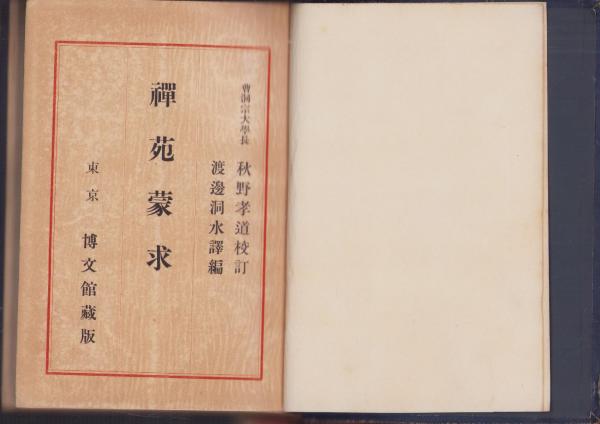 曹洞宗大學長
秋野孝道校訂
渡邊洞水譯編
禪苑蒙求
東京 博文館藏版